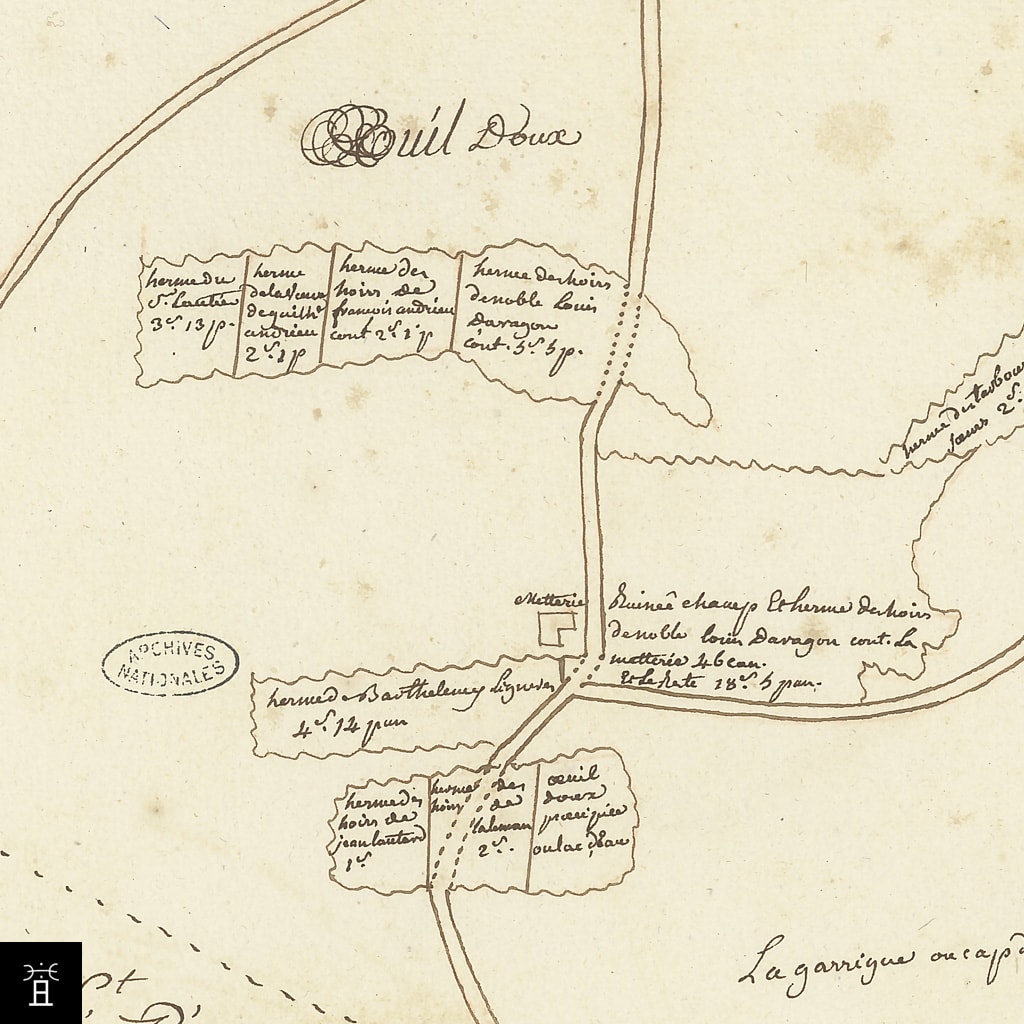 Œuil Doux
herme du
Sr. Lautié
3s. 13 p.
herme
de la Veuve
de guilhe
andrieu
2s. 1 p
herme des
hoirs de
francois andrieu
cont 2s. 1 p
herme des hoirs
de noble Louis
Daragon
cont. 5s. 5 p.
herme des
sœurs 2s.
Metterie
Ruinée champ Et herme des hoirs
de noble louis Daragon cont. La
metterie 46 can.
Et Le Reste 18s. 5 pan.
ARCHIVES
NATIONALES
herme de Barthelemy Ligneres
4s. 14 pan
herme des
hoirs de
jean lautard
1s
herme des
hoirs de
laleman
2s.
œuil
doux
precipice
ou lac d'Eau
La garrigue ou cap